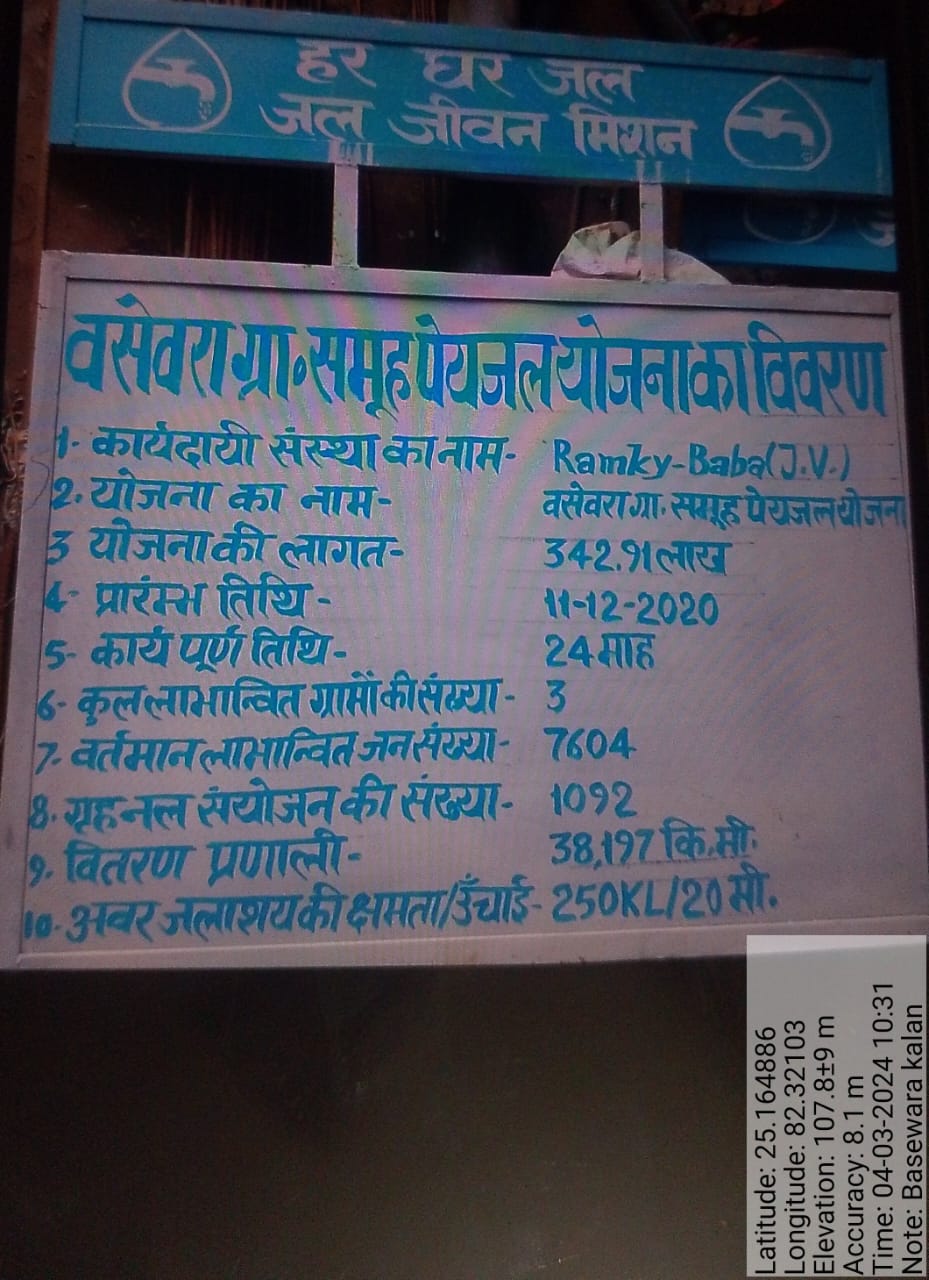 हर घर जल
जल जीवन मिशन
वसेवरा ग्रा. समूह पेयजल योजना का विवरण
1- कार्यदायी संस्था का नाम- Ramky-Baba(J.V.)
2. योजना का नाम- वसेवरा ग्रा. समूह पेयजल योजना
3 योजना की लागत- 342.91 लाख
4- प्रारंम्भ तिथि - 11-12-2020
5- कार्य पूर्ण तिथि - 24 माह
6- कुल लाभान्वित ग्रामों की संख्या - 3
7- वर्तमान लाभान्वित जन संख्या- 7604
8. गृह नल संयोजन की संख्या- 1092
9. वितरण प्रणाली- 38,197 कि.मी.
10- अवर जलाशय की क्षमता/उँचाई- 250KL/20 मी.
Latitude: 25.164886
Longitude: 82.32103
Elevation: 107.8±9 m
Accuracy: 8.1 m
Time: 04-03-2024 10:31
Note: Basewara kalan